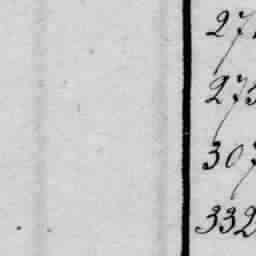 27
275
307
332